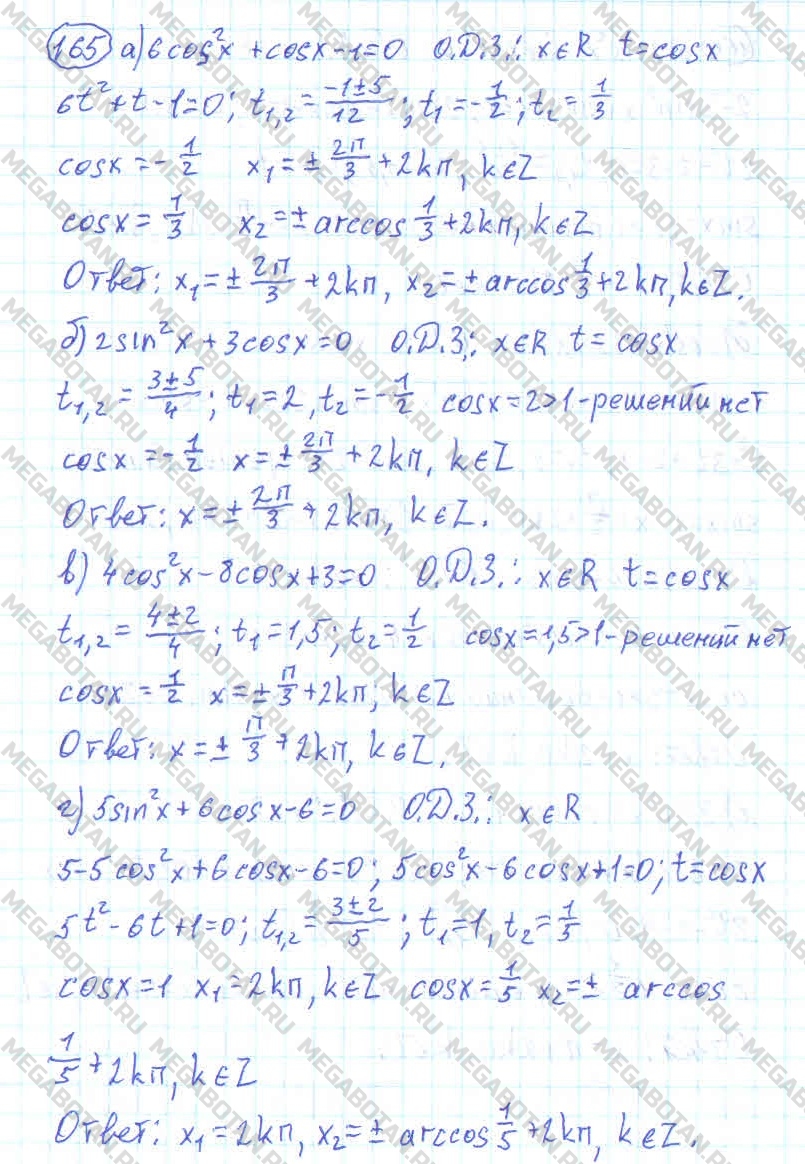 165 а) 6cos²x + cosx - 1 = 0 О.Д.З.: x∈R t = cosx
6t² + t - 1 = 0; t₁,₂ = (-1±5)/12; t₁ = -1/2; t₂ = 1/3
cosx = -1/2 x₁ = ± 2π/3 + 2kπ, k∈Z
cosx = 1/3 x₂ = ± arccos 1/3 + 2kπ, k∈Z
Ответ: x₁ = ± 2π/3 + 2kπ, x₂ = ± arccos 1/3 + 2kπ, k∈Z.
б) 2sin²x + 3cosx = 0 О.Д.З.: x∈R t = cosx
t₁,₂ = (3±5)/4; t₁ = 2, t₂ = -1/2 cosx = 2 > 1 - решений нет
cosx = -1/2 x = ± 2π/3 + 2kπ, k∈Z
Ответ: x = ± 2π/3 + 2kπ, k∈Z.
в) 4cos²x - 8cosx + 3 = 0 О.Д.З.: x∈R t = cosx
t₁,₂ = (4±2)/4; t₁ = 1,5; t₂ = 1/2 cosx = 1,5 > 1 - решений нет
cosx = 1/2 x = ± π/3 + 2kπ; k∈Z
Ответ: x = ± π/3 + 2kπ, k∈Z.
г) 5sin²x + 6cosx - 6 = 0 О.Д.З.: x∈R
5 - 5cos²x + 6cosx - 6 = 0; 5cos²x - 6cosx + 1 = 0; t = cosx
5t² - 6t + 1 = 0; t₁,₂ = (3±2)/5; t₁ = 1, t₂ = 1/5
cosx = 1 x₁ = 2kπ, k∈Z cosx = 1/5 x₂ = ± arccos
1/5 + 2kπ, k∈Z
Ответ: x₁ = 2kπ, x₂ = ± arccos 1/5 + 2kπ, k∈Z.
MEGABOTAN.RU